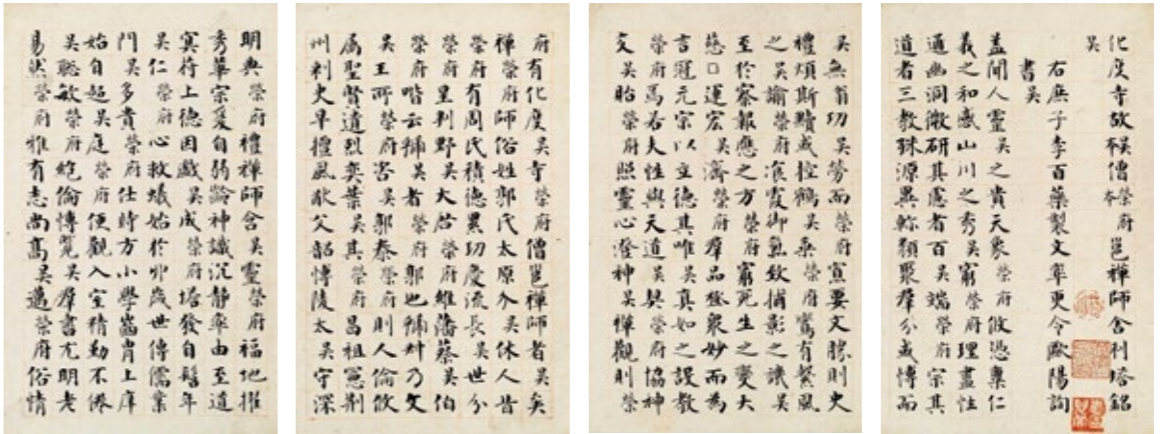 化度寺故吳本僧榮府邕禪師舍利塔銘
吳
右庶子李百藥製文率更令歐陽詢
書吳
蓋聞人靈吳之貴天象榮府攸憑稟仁
義之和感山川之秀吳窮榮府理盡性
通幽洞微研其慮者百吳端榮府宗其
道者三教殊源異軫類聚群分或博而
吳無翁切吳勞而榮府寡要文勝則史
禮煩斯黷或控鶴吳乘榮府鸞有繫風
之吳諭榮府飡霞御氣致捕影之譏吳
至於察報應之方榮府窮死生之變大
慈口運宏吳濟榮府群品極衆妙而為
言冠元宗以立德其唯吳真如之設教
榮府焉若夫性與天道吳契榮府協神
交吳貽榮府照靈心澄神吳禪觀則榮
府有化度吳寺榮府僧邕禪師者矣
禪榮府師俗姓郭氏太原介吳休人昔
榮府有周氏積德累功慶流長吳世分
榮府星判野吳大啓榮府維藩蔡吳伯
榮府喈云號吳者榮府郭也號叔乃文
吳王所榮府咨吳郭泰榮府則人倫攸
屬聖賢遺烈奕葉吳其榮府昌祖憲荊
州刺史早擅風猷父韶博陵太吳守深
明典榮府禮禪師含吳靈榮府福地擢
秀華宗爰自弱齡神識沉靜率由至道
冥符上德因戲吳成榮府塔發自髫年
吳仁榮府心救蟻始於丱歲世傳儒業
門吳多貴榮府仕時方小學齒胄上庠
始自趨吳庭榮府便觀入室精勤不倦
吳聰敏榮府絶倫博覽吳群書尤明老
易然榮府雅有志尚高吳邁榮府俗情